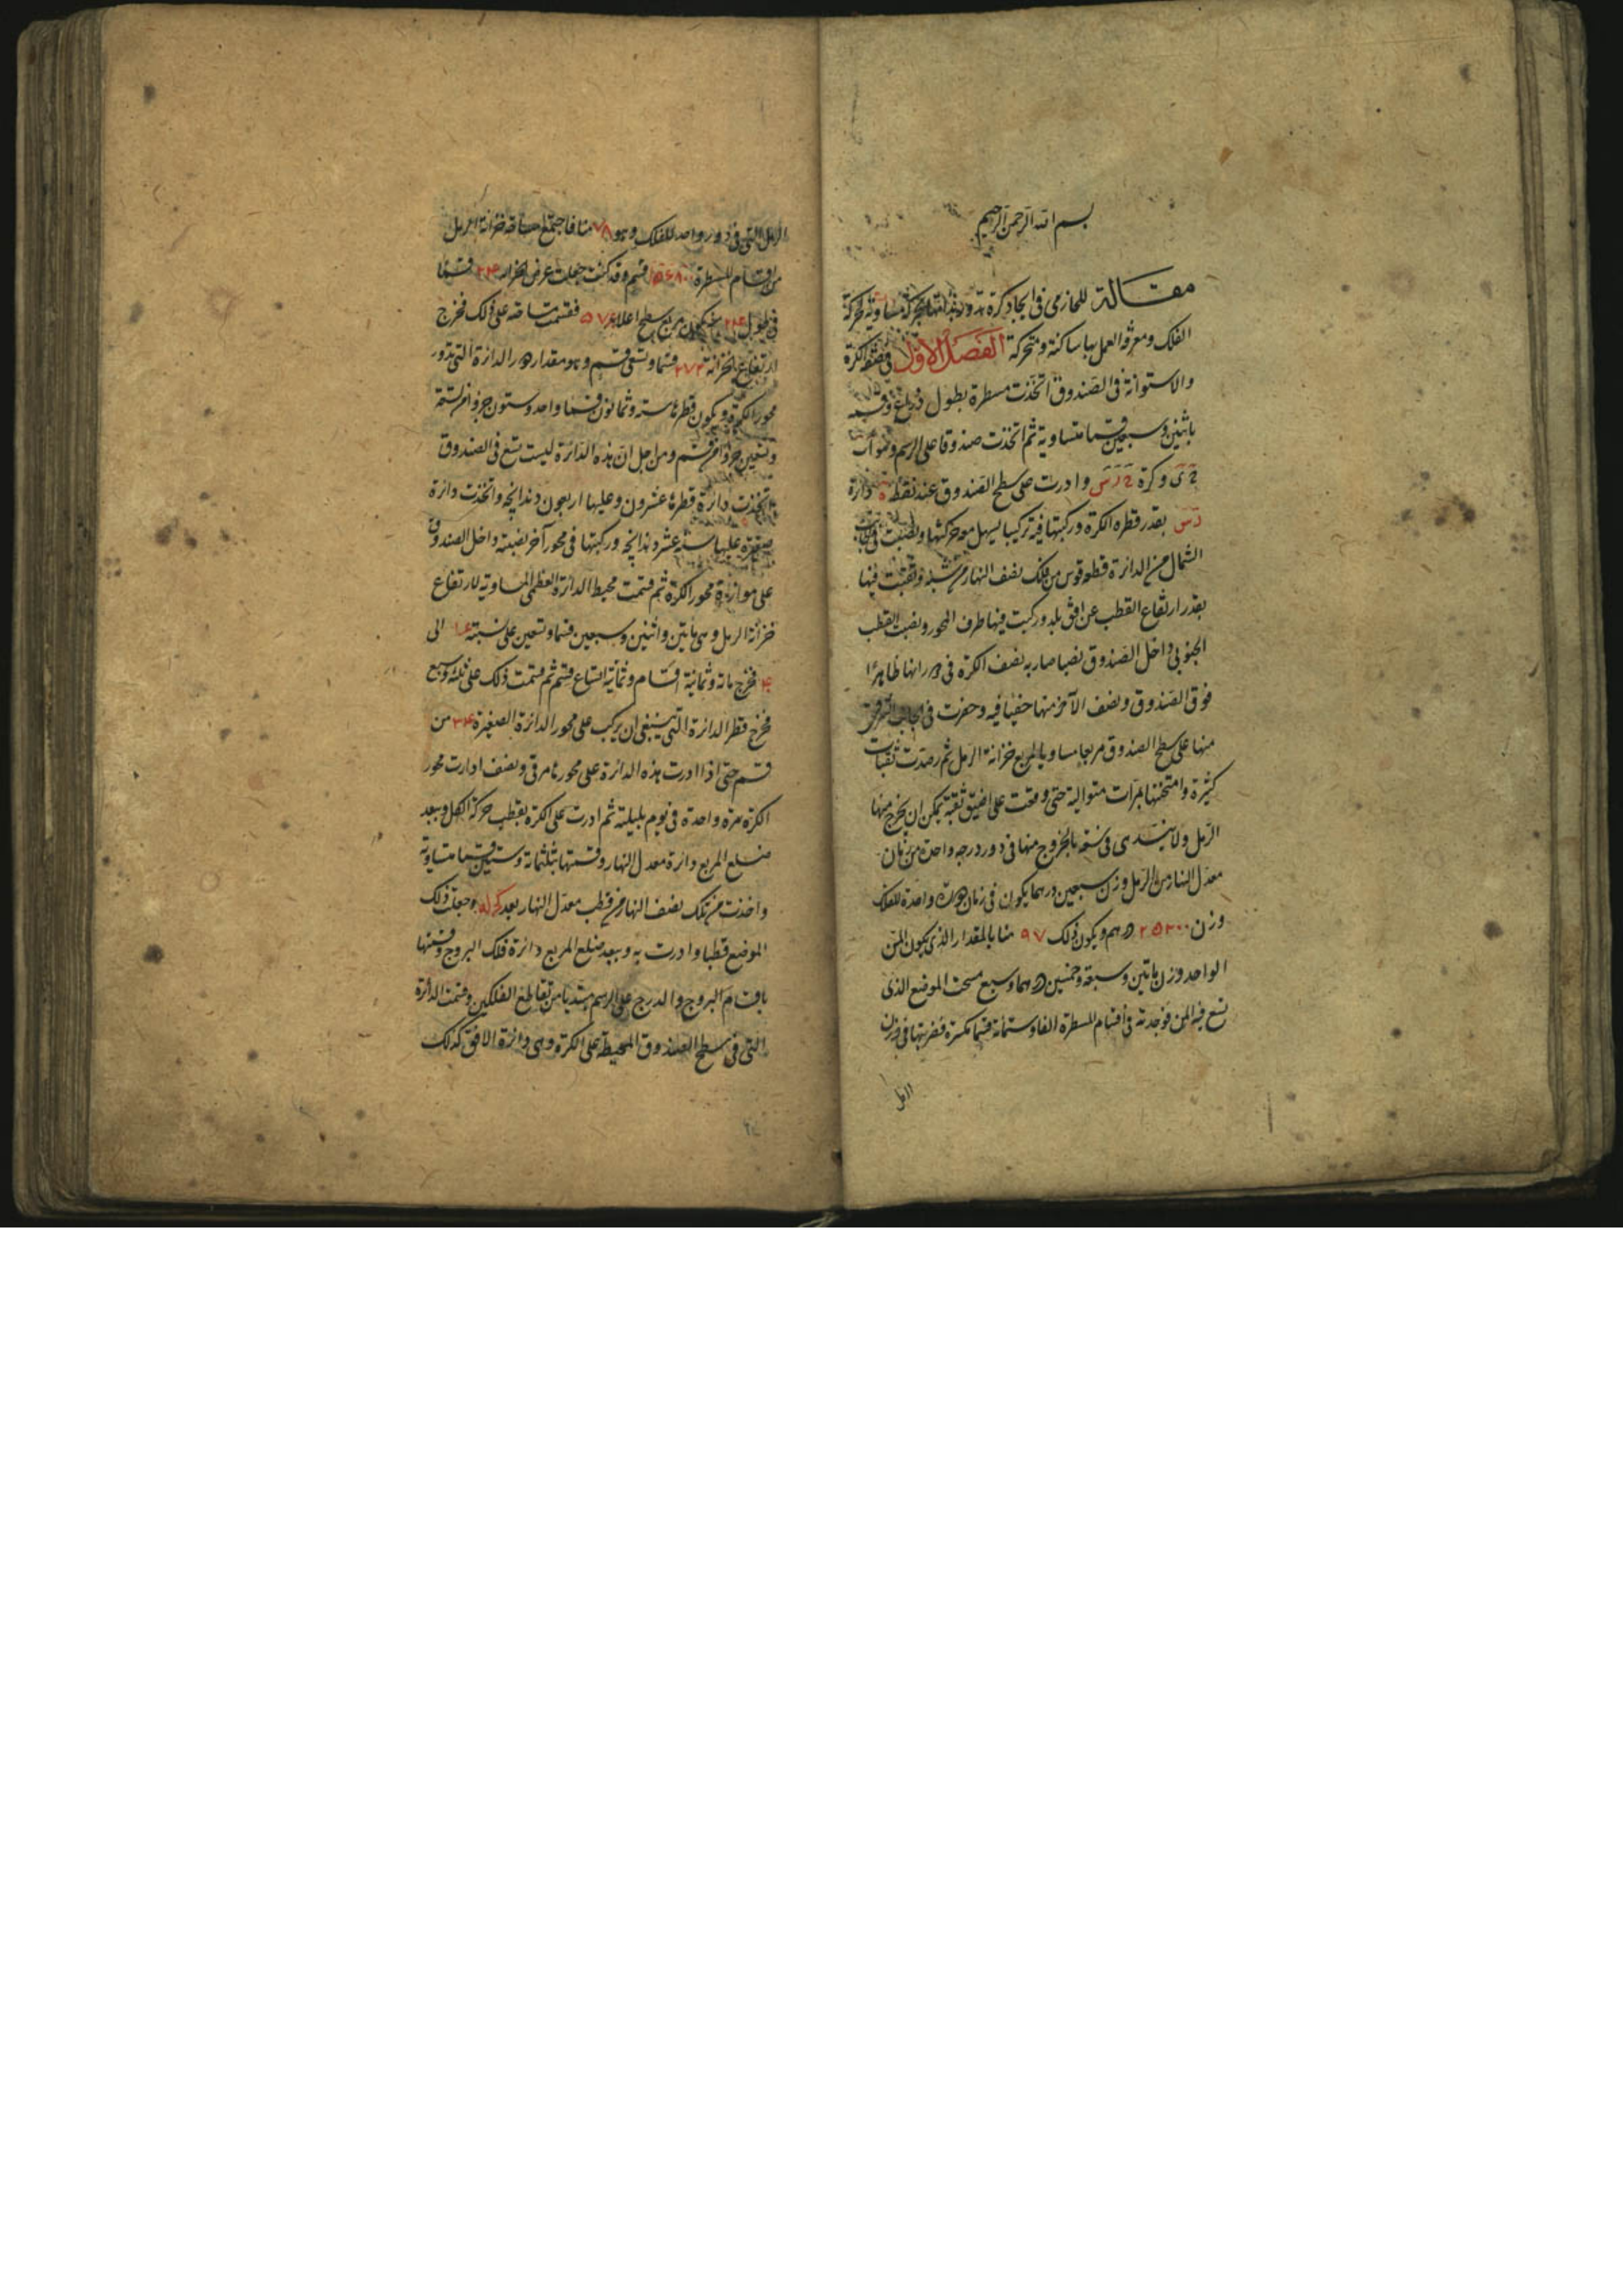 بسم الله الرحمن الرحيم
مقالة للخازمى فى اتخاذ كرة تدور بذاتها بحركة مساوية لحركة
الفلك ومعرفة العمل بها ساكنة ومتحركة الفصل الاول فى صفة الكرة
والاستوانة فى الصندوق اتخذت مسطرة بطول ذراع وقسمته
باثنين وسبعين قسما متساوية ثم اتخذت صندوقا على الرسم وهو اب
وكرة وادرت على سطح الصندوق عند نقطة ه دائرة
دس بقدر قطر الكرة وركبتها فيه تركيبا يسهل معه حركتها ونصبت فى جانب
الشمال من الدائرة قطعة قوس من فلك نصف النهار من شبه وثقبت فيها
بقدر ارتفاع القطب عن افق بلد وركبت فيها طرف المحور ونصبت القطب
الجنوبى داخل الصندوق نصبا صار به نصف الكرة فى دورانها ظاهرا
فوق الصندوق ونصف الآخر منها خفيا فيه وحفرت فى الجانب الشرقى
منها على سطح الصندوق مربعا مساويا لمربع خزانة الرمل ثم رصدت ثقبات
كثيرة وامتحنتها مرات متوالية حتى وقعت على اضيق ثقبة يمكن ان يخرج منها
الرمل ولا ينسدى فى سنة بالخروج منها فى دور درجة واحدة من زمان
معدل النهار من الرمل وزن سبعين درهما يكون فى زمان دورة واحدة للفلك
وزن ٢٥٢٠٠ درهم ويكون ذلك ٩٧ منا بالمقدار الذى يكون المن
الواحد وزن مأتين وسبعة وخمسين درهما وسبع مسحت الموضع الذى
تسع فيه المن فوجدته فى اقسام المسطرة الفا وستمائة قسما مكسرة فضربتها فى وزن
الرمل
الرمل التى فى دور واحد للفلك وهو ٧٨ منا فاجتمع مساحة خزانة الرمل
من اقسام المسطرة ١٥٦٨٠٠ قسم وقد كنت جعلت عرض الخزانة ٢٤ قسما
فى طول ٢٤ فيكون مربع سطح اعلاه ٥٧٦ فقسمت مساحته على ذلك فخرج
ارتفاع الخزانة ٢٧٢ قسما وتسعى قسم وهو مقدار دور الدائرة التى تدور
محور الكرة ويكون قطره ستة وثمانون قسما واحد وستون جزؤا من ستمة
وتسعين جزؤا من قسم ومن اجل ان هذه الدائرة ليست تسع فى الصندوق
اتخذت دائرة قطرها عشرون وعليها اربعون دندانجه واتخذت دائرة
صغيرة عليها ستة عشر دندانجه وركبتها فى محور آخر نصبته داخل الصندوق
على موازية محور الكرة ثم قسمت محيط الدائرة العظمى المساوية لارتفاع
خزانة الرمل وهى مأتين واثنين وسبعين قسما وتسعين على نسبة ١٦ الى
٤٠ فخرج مائة وثمانية اقسام وثمانية اتساع قسم ثم قسمت ذلك على ثلثة وسبع
فخرج قطر الدائرة التى ينبغى ان يركب على محور الدائرة الصغيرة ٣٤ من
قسم حتى اذا ادرت هذه الدائرة على محورها مرتى ونصف ادارت محور
الكرة مرة واحدة فى يوم بليلته ثم ادرت على الكرة بقطب حركة الكل وببعد
ضلع المربع دائرة معدل النهار وقسمتها بثلثمائة وستين قسما متساوية
واخذت من تلك نصف النهار من قطب معدل النهار بعد كج له وجعلت ذلك
الموضع قطبا وادرت به وببعد ضلع المربع دائرة فلك البروج وقسمتها
باقسام البروج والدرج على الرسم مبتديا من تقاطع الفلكين وقسمت الدائرة
التى فى سطح الصندوق المحيطة على الكرة وهى دائرة الافق كذلك